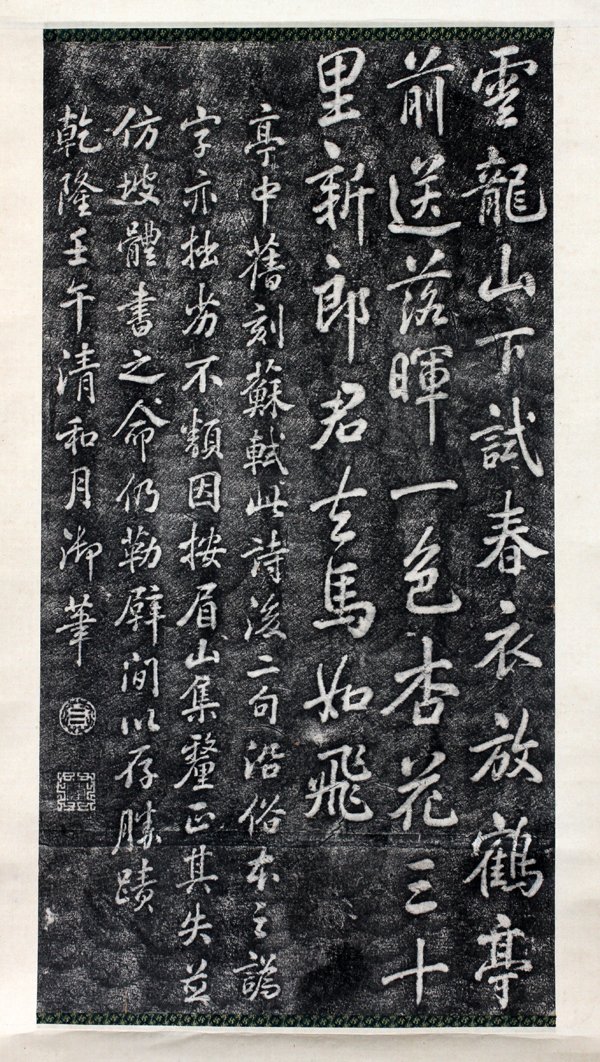 雲龍山下試春衣放鶴亭
前送落暉一色杏花三十
里新郎君去馬如飛
亭中舊刻蘇軾此詩後二句沿俗本之譌
字亦拙劣不類因按眉山集釐正其失並
仿坡體書之命仍勒壁間以存勝蹟
乾隆壬午清和月御筆